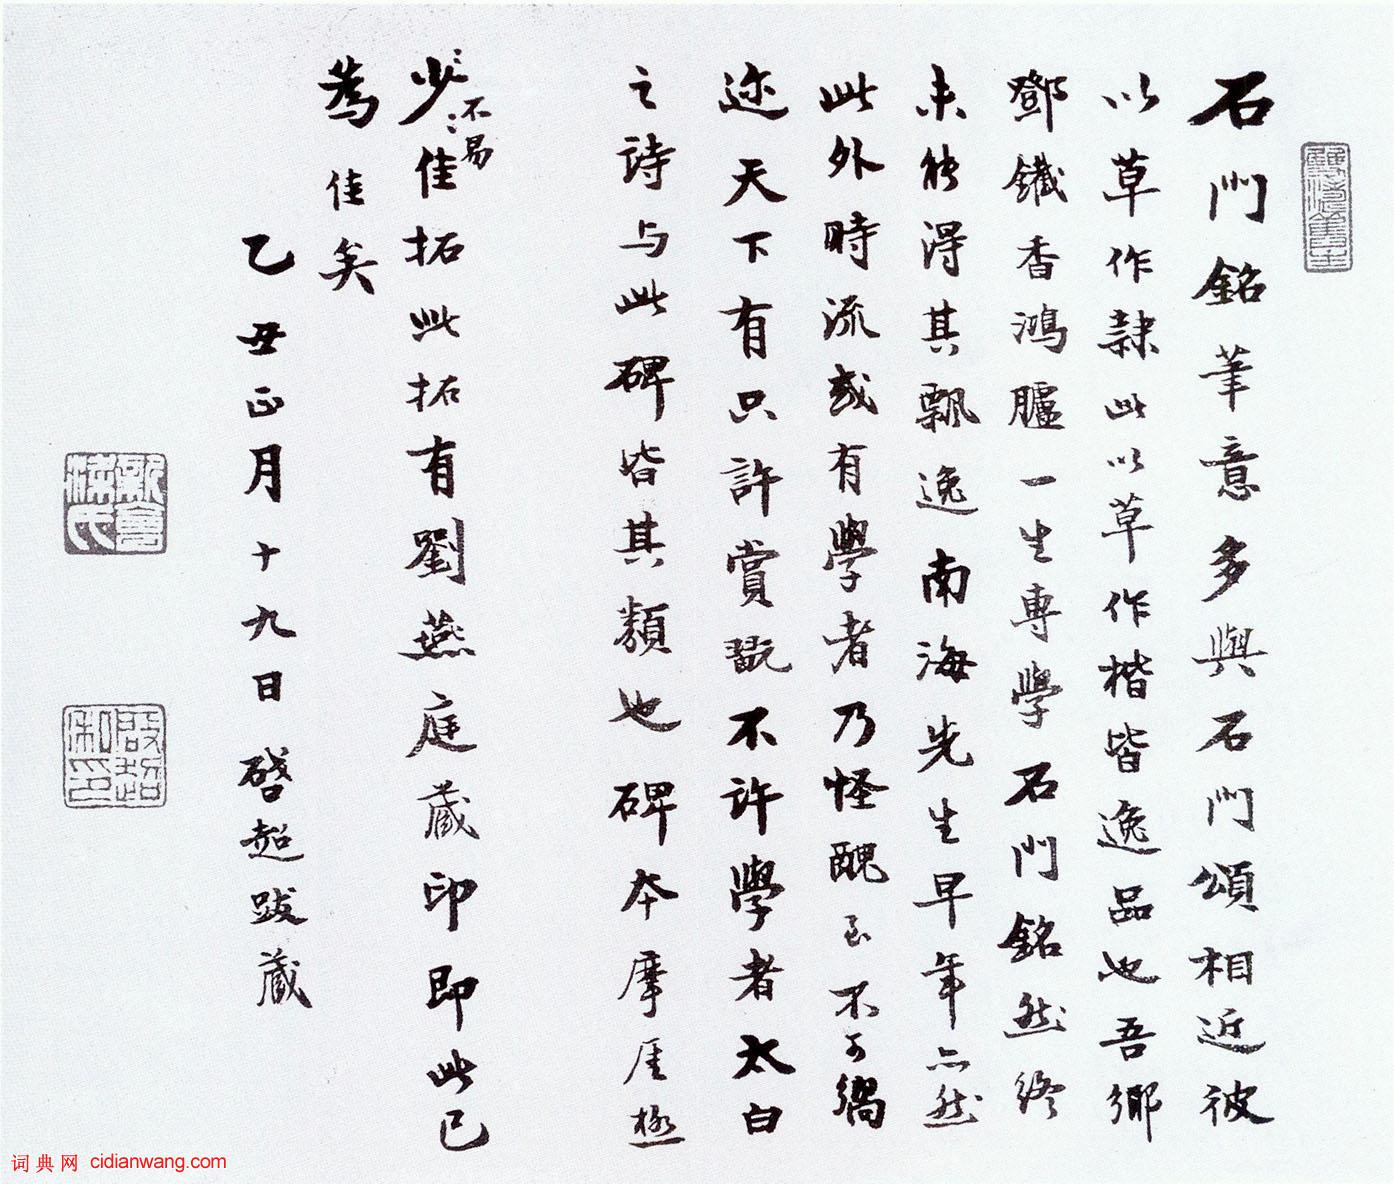 石門銘筆意多與石門頌相近彼
以草作隸此以草作楷皆逸品也吾鄉
鄧鐵香鴻臚一生專學石門銘然終
未能得其飄逸南海先生早年亦然
此外時流或有學者乃怪醜至不可嚮
迩天下有只許賞翫不許學者太白
之詩与此碑皆其類也碑本摩厓極
少佳拓此拓有劉燕庭藏印即此已
不易
為佳矣
乙丑正月十九日啓超跋藏
新會梁氏
啟超私印
词典网 cidianwang.com